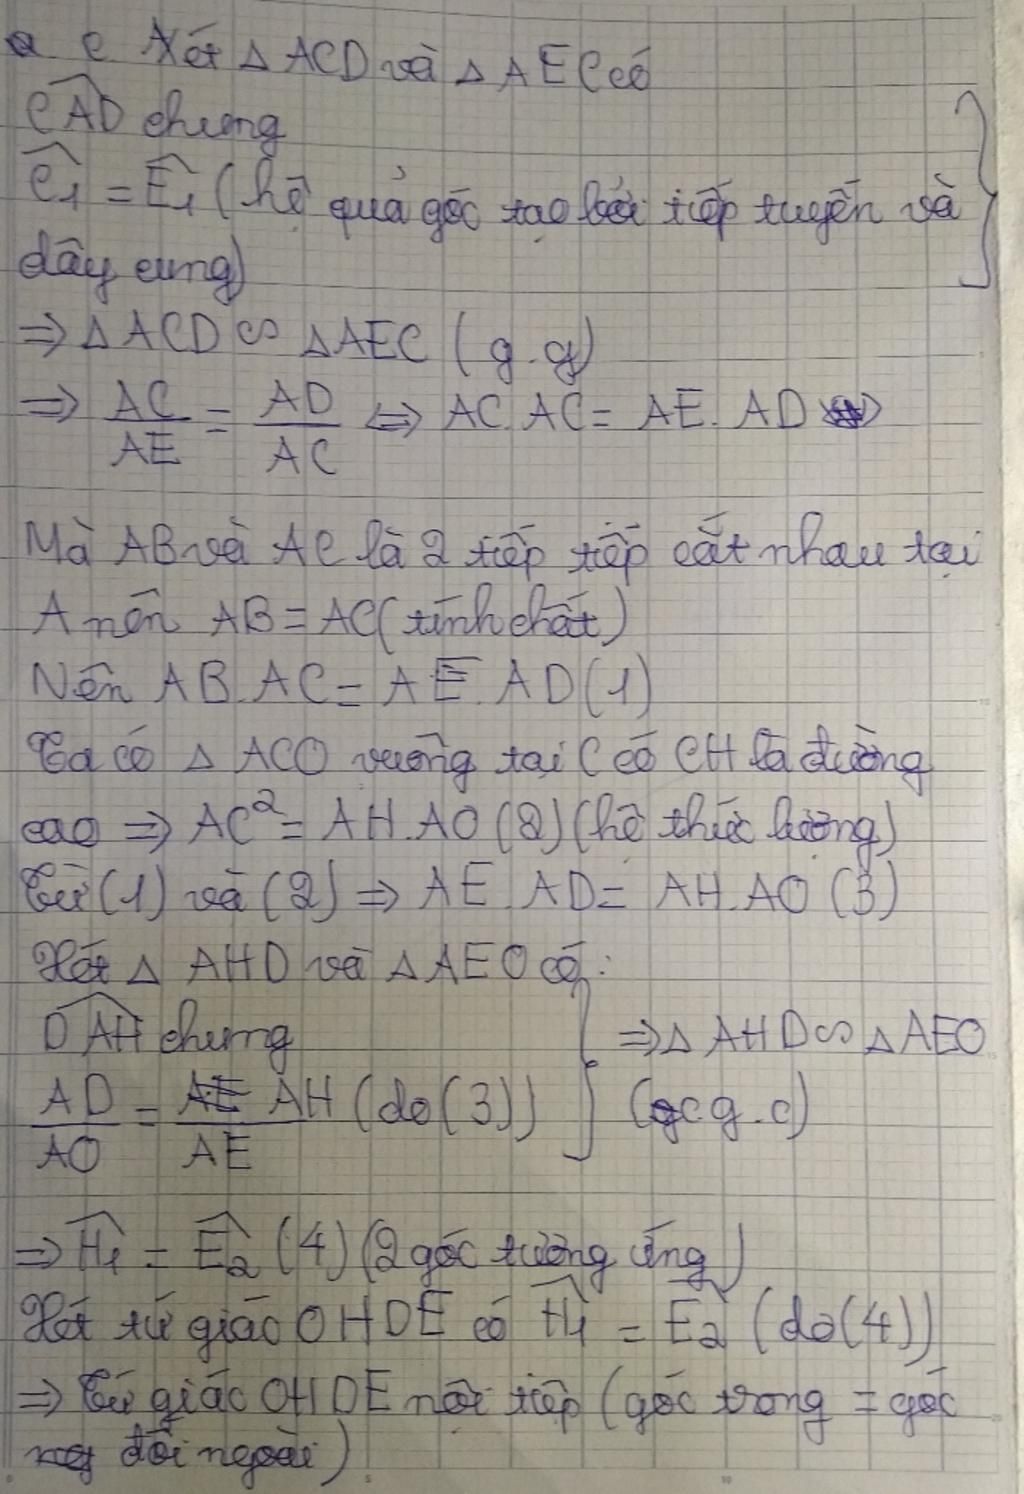 c Xét △ ACD và △ AEC có
CAD chung
C1 = E1 (hệ quả góc tạo bởi tiếp tuyến và
dây cung)
⇒ △ ACD ∽ △AEC (g.g)
⇒ AC/AE = AD/AC ⇔ AC.AC = AE.AD
Mà AB và AC là 2 tiếp tiếp cắt nhau tại
A nên AB = AC (tính chất)
Nên AB.AC = AE.AD (1)
Ta có △ ACO vuông tại C có CH là đường
cao ⇒ AC² = AH.AO (2) (hệ thức lượng)
Từ (1) và (2) ⇒ AE.AD = AH.AO (3)
Xét △ AHD và △ AEO có:
DAH chung ⇒ △ AHD ∽ △ AEO
AD/AO = AH/AE (do (3)) (c.g.c)
⇒ H1 = E2 (4) (2 góc tương ứng)
Xét tứ giác OHDE có H1 = E2 (do (4))
⇒ Tứ giác OHDE nội tiếp (góc trong = góc
đối ngoài)